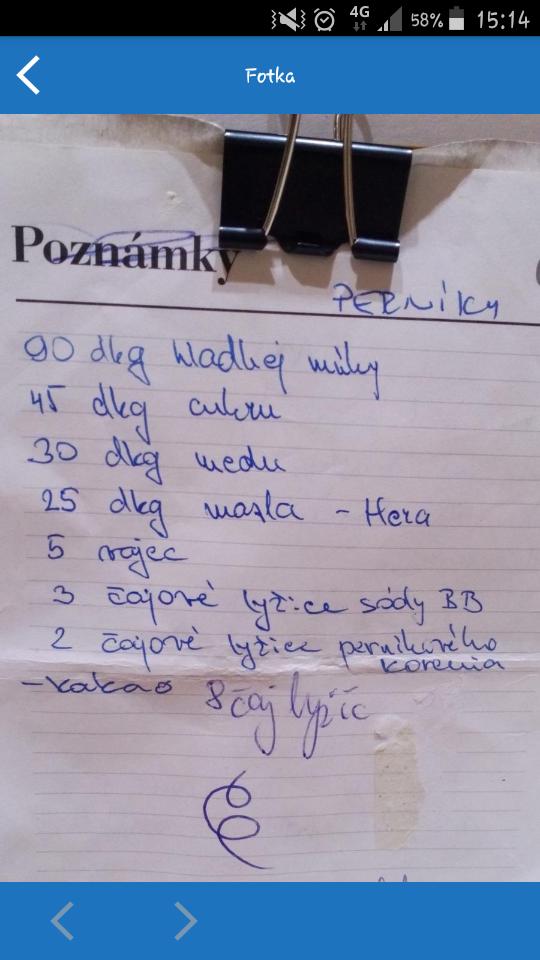 4G
58%
15:14
Fotka
Poznámky
PERNÍKY
90 dkg hladkej múky
45 dkg cukru
30 dkg medu
25 dkg masla - Hera
5 vajec
3 čajové lyžice sódy BB
2 čajové lyžice pernikového
korenia
- kakao 8 čaj lyžíc